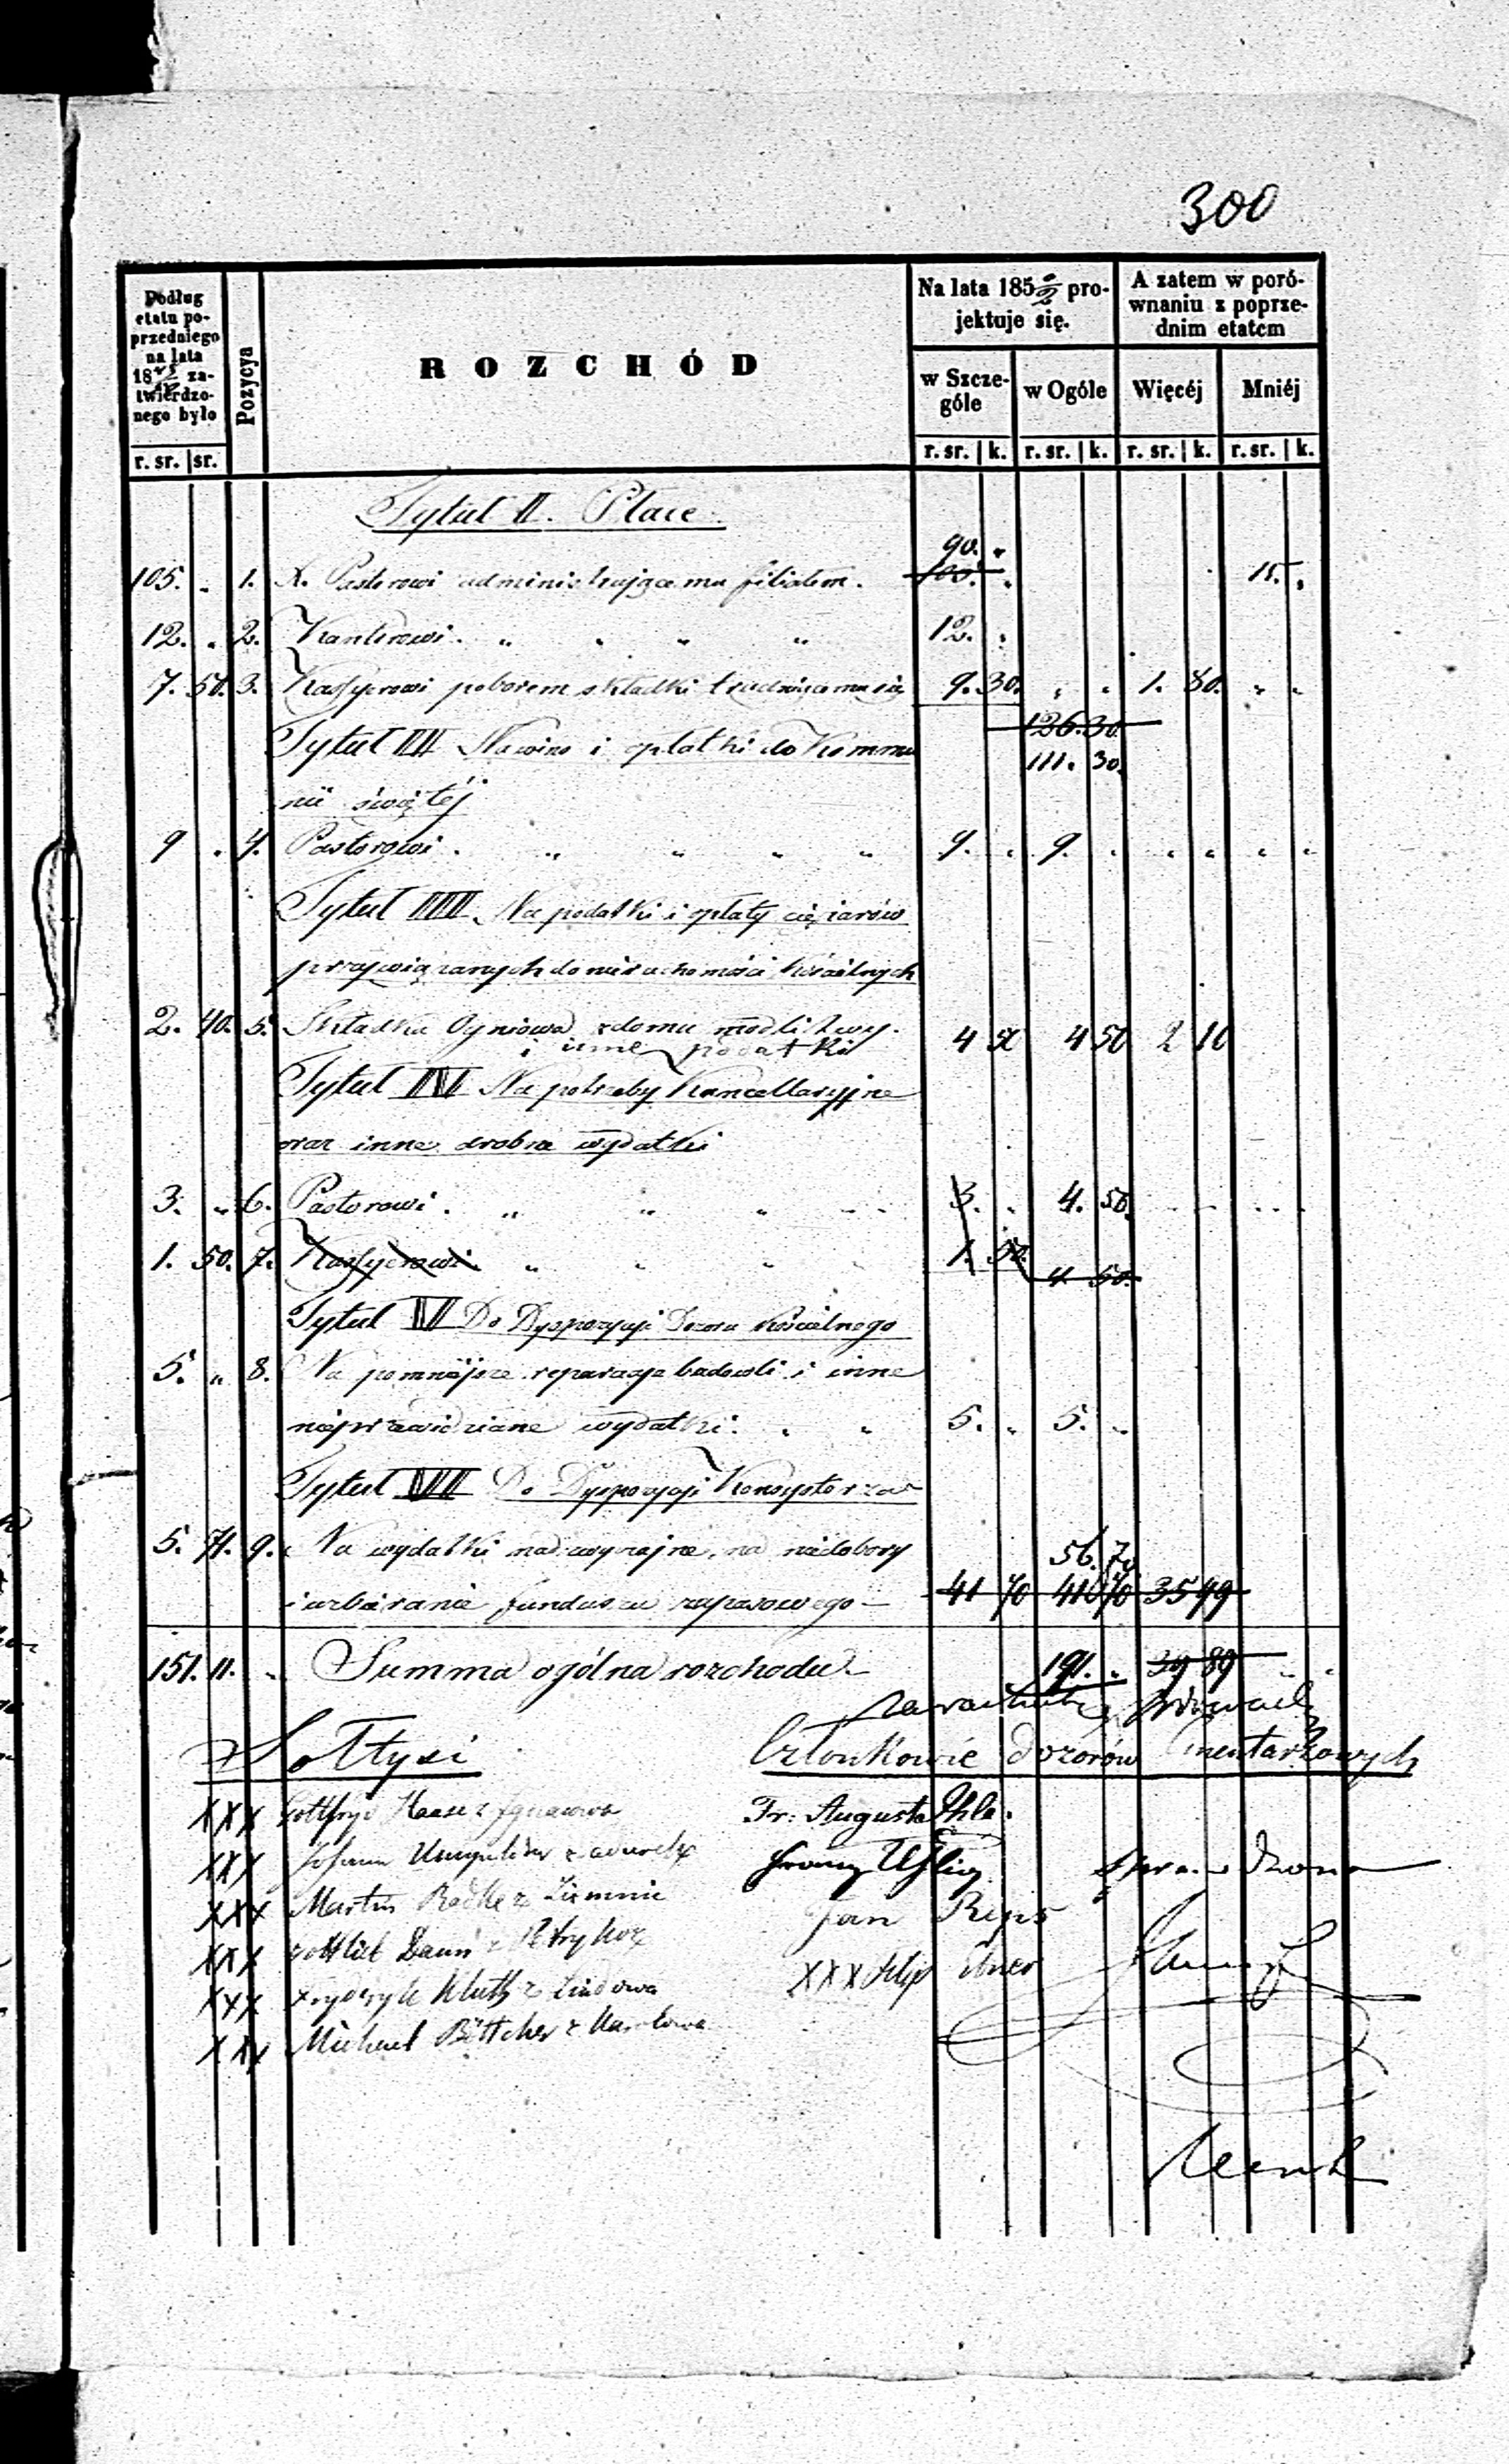 300
Podług etatu poprzedniego na lata 18 zatwierdzonego było
Pozycya
ROZCHÓD
Na lata 185 0/2 projektuje się.
A zatem w porównaniu z poprzednim etatem
w Szczególe
w Ogóle
Więcéj
Mniéj
r. sr. | sr.
r. sr. | k. r. sr. | k. r. sr. | k. r. sr. | k.
Tytuł II. Płace.
90. "
105. " 1. X. Pastorowi administrującemu filiałem. 105. " 15. "
12. " 2. Kantorowi. " " " " 12. "
7. 50. 3. Kassyerowi poborem składki trudniącemu się 9. 30. " " 1. 80. " "
126. 30.
Tytuł III Na wino i opłatki do Kommu
111. 30.
nii świętéj
9 " 4. Pastorowi. " " " " 9. " 9. " " " " "
Tytuł IIII Na podatki i opłaty ciężarów
przywiązanych do nieruchomości kościelnych
2. 40. 5. Składka Ogniowa z domu modlitwy.
i inne podatki 4 50 4 50 2 10
Tytuł IV Na potrzeby Kancellaryjne
oraz inne drobne wydatki
3. " 6. Pastorowi. " " " " 3. " 4. 50.
1. 50. 7. Kassyerowi. " " " 1. 50.
4 50.
Tytuł VI Do Dyspozycji Dozoru Kościelnego
5. " 8. Na pomniejsze reparacje budowli i inne
nieprzewidziane wydatki. " " 5. " 5. "
Tytuł VII Do Dyspozycji Konsystorza
5. 71. 9. Na wydatki nadzwyczajne, na niedobory
56. 70
i uzbieranie funduszu zapasowego — 41 70 41 70 35 99
151. 11. " Summa ogólna rozchodu — 191. " 39 89
Sołtysi
Członkowie dozorów Cmentarzowych
XXX Gottfryd Haase z Ignacewa
Fr: August Ihle.
XXX Johann
Franz Uhlig
XXX Martin Radke z Ziemnic
Jan Reps
XXX Gottlieb Daum z
XXX Filip
XXX Fryderyk Kluth z Lindowa
XXX Michael Böttcher z